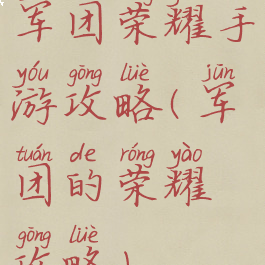 军团荣耀手
yóu gōng lüè jūn
游攻略(军
tuán de róng yào
团的荣耀
gōng lüè
攻略)